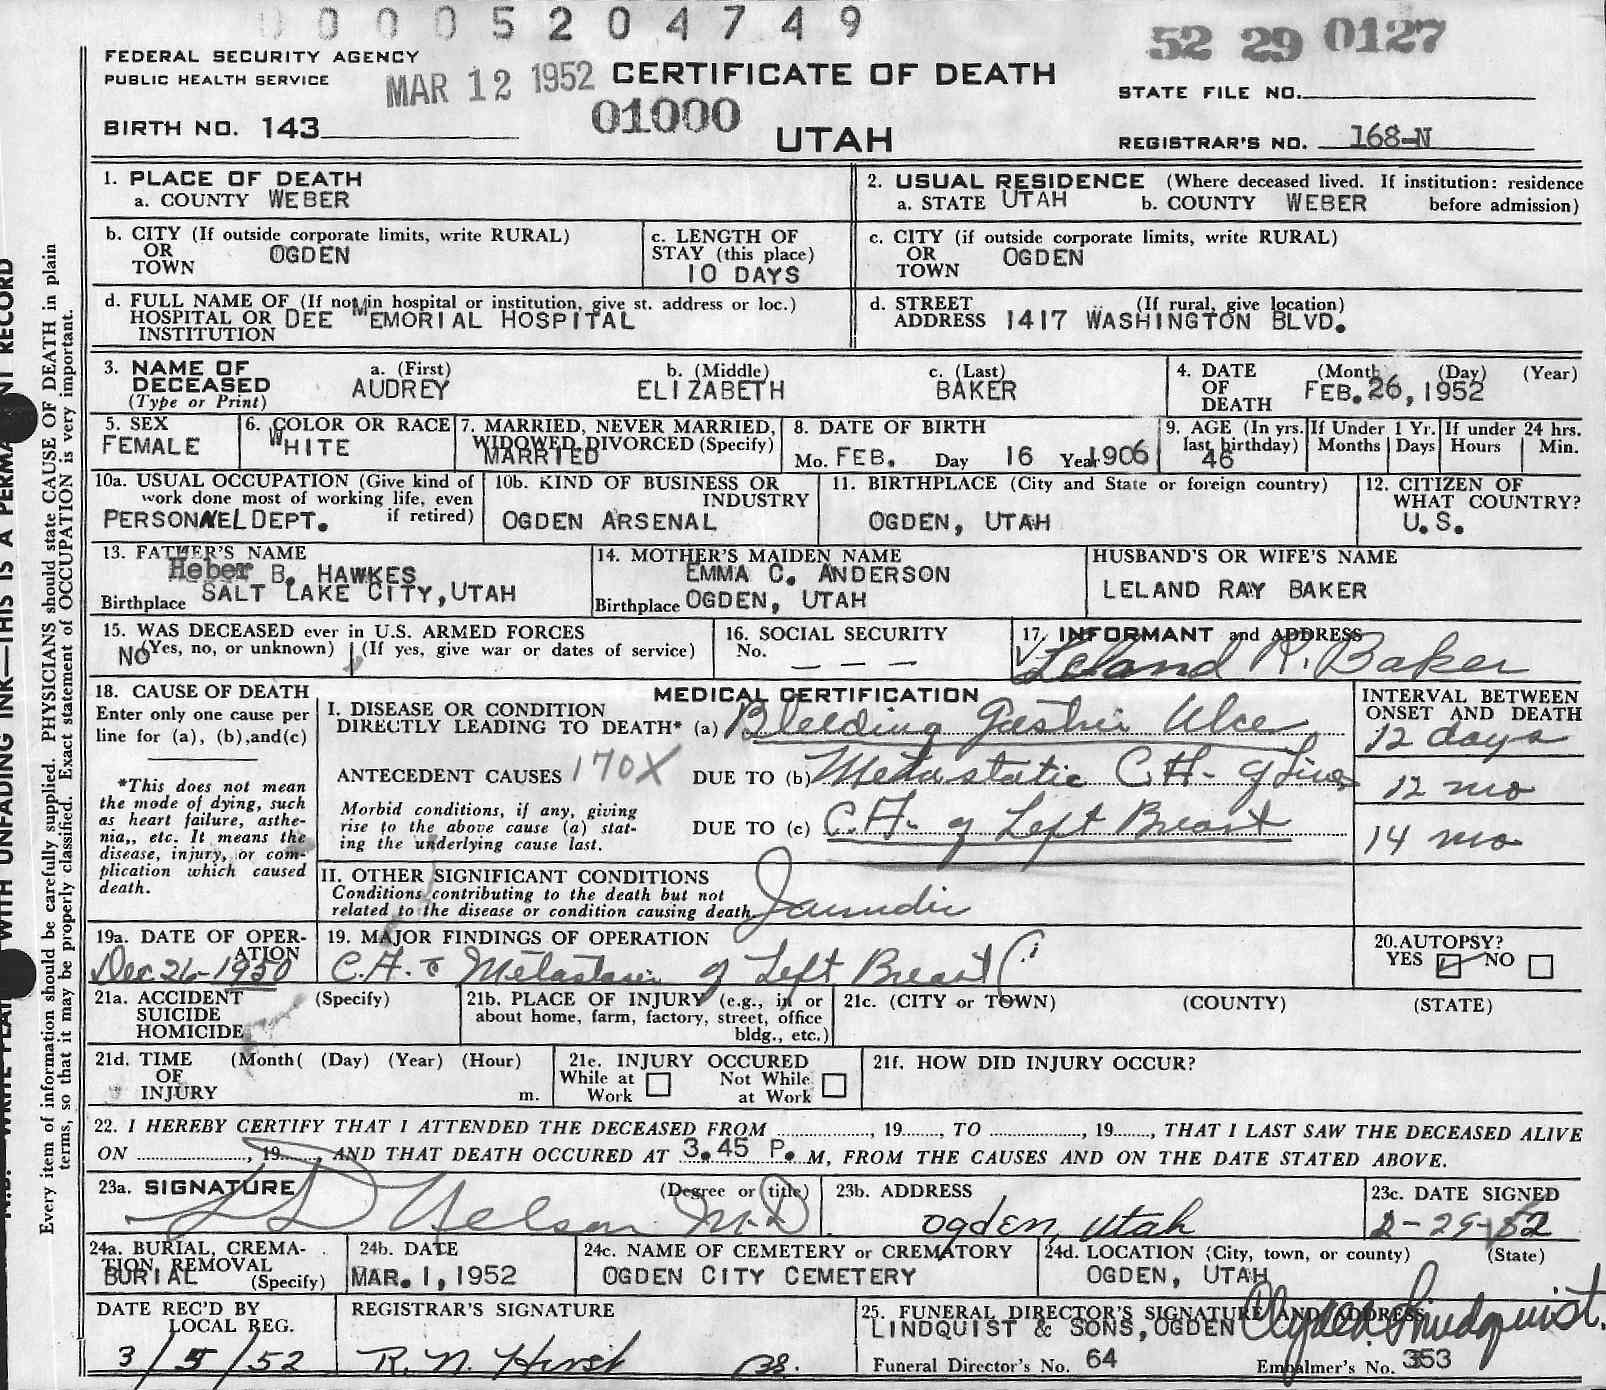 0 0 0 0 5 2 0 4 7 4 9
52 29 0127
FEDERAL SECURITY AGENCY
PUBLIC HEALTH SERVICE
MAR 12 1952
CERTIFICATE OF DEATH
STATE FILE NO.
BIRTH NO. 143
01000
UTAH
REGISTRAR'S NO. 168-N
WITH UNFADING INK—THIS IS A
RECORD
Every item of information should be carefully supplied. PHYSICIANS should state CAUSE OF DEATH in plain
terms, so that it may be properly classified. Exact statement of OCCUPATION is very important.
1. PLACE OF DEATH
a. COUNTY WEBER
2. USUAL RESIDENCE (Where deceased lived. If institution: residence
a. STATE UTAH b. COUNTY WEBER before admission)
b. CITY (If outside corporate limits, write RURAL)
OR
TOWN OGDEN
c. LENGTH OF
STAY (this place)
10 DAYS
c. CITY (if outside corporate limits, write RURAL)
OR
TOWN OGDEN
d. FULL NAME OF (If not in hospital or institution, give st. address or loc.)
HOSPITAL OR DEE MEMORIAL HOSPITAL
INSTITUTION
d. STREET (If rural, give location)
ADDRESS 1417 WASHINGTON BLVD.
3. NAME OF
DECEASED
(Type or Print)
a. (First)
AUDREY
b. (Middle)
ELIZABETH
c. (Last)
BAKER
4. DATE
OF
DEATH
(Month) (Day) (Year)
FEB.26,1952
5. SEX
FEMALE
6. COLOR OR RACE
WHITE
7. MARRIED, NEVER MARRIED,
WIDOWED, DIVORCED (Specify)
MARRIED
8. DATE OF BIRTH
Mo. FEB. Day 16 Year 1906
9. AGE (In yrs.
last birthday)
46
If Under 1 Yr.
Months Days
If under 24 hrs.
Hours Min.
10a. USUAL OCCUPATION (Give kind of
work done most of working life, even
if retired)
PERSONNEL DEPT.
10b. KIND OF BUSINESS OR
INDUSTRY
OGDEN ARSENAL
11. BIRTHPLACE (City and State or foreign country)
OGDEN, UTAH
12. CITIZEN OF
WHAT COUNTRY?
U.S.
13. FATHER'S NAME
Heber B. HAWKES
Birthplace SALT LAKE CITY, UTAH
14. MOTHER'S MAIDEN NAME
EMMA C. ANDERSON
Birthplace OGDEN, UTAH
HUSBAND'S OR WIFE'S NAME
LELAND RAY BAKER
15. WAS DECEASED ever in U.S. ARMED FORCES
NO (Yes, no, or unknown) (If yes, give war or dates of service)
16. SOCIAL SECURITY
No. — — —
17. INFORMANT and ADDRESS
Leland R. Baker
18. CAUSE OF DEATH
Enter only one cause per
line for (a), (b), and (c)
*This does not mean
the mode of dying, such
as heart failure, asthe-
nia,, etc. It means the
disease, injury, or com-
plication which caused
death.
MEDICAL CERTIFICATION
I. DISEASE OR CONDITION
DIRECTLY LEADING TO DEATH* (a) Bleeding Gastric Ulcer
ANTECEDENT CAUSES 170X DUE TO (b) Metastatic C.A. of Liver
Morbid conditions, if any, giving
rise to the above cause (a) stat-
ing the underlying cause last.
DUE TO (c) C.A. of Left Breast
INTERVAL BETWEEN
ONSET AND DEATH
12 days
12 mo
14 mo
II. OTHER SIGNIFICANT CONDITIONS
Conditions contributing to the death but not
related to the disease or condition causing death.
Jaundice
19a. DATE OF OPER-
ATION
Dec 26-1950
19. MAJOR FINDINGS OF OPERATION
C.A. c̄ Metastasis of Left Breast
20. AUTOPSY?
YES ☑ NO ☐
21a. ACCIDENT (Specify)
SUICIDE
HOMICIDE
21b. PLACE OF INJURY (e.g., in or
about home, farm, factory, street, office
bldg., etc.)
21c. (CITY or TOWN) (COUNTY) (STATE)
21d. TIME (Month( (Day) (Year) (Hour)
OF
INJURY m.
21e. INJURY OCCURED
While at Work ☐ Not While at Work ☐
21f. HOW DID INJURY OCCUR?
22. I HEREBY CERTIFY THAT I ATTENDED THE DECEASED FROM ............, 19......, TO ............, 19......, THAT I LAST SAW THE DECEASED ALIVE
ON ............, 19......, AND THAT DEATH OCCURED AT 3.45 P. M, FROM THE CAUSES AND ON THE DATE STATED ABOVE.
23a. SIGNATURE (Degree or title)
L D Nelson M.D.
23b. ADDRESS
Ogden, Utah
23c. DATE SIGNED
2-29-52
24a. BURIAL, CREMA-
TION, REMOVAL
BURIAL (Specify)
24b. DATE
MAR. 1, 1952
24c. NAME OF CEMETERY or CREMATORY
OGDEN CITY CEMETERY
24d. LOCATION (City, town, or county) (State)
OGDEN, UTAH
DATE REC'D BY
LOCAL REG.
3/5/52
REGISTRAR'S SIGNATURE
R. N. Hirst
25. FUNERAL DIRECTOR'S SIGNATURE AND ADDRESS
LINDQUIST & SONS, OGDEN
Lindquist
Funeral Director's No. 64 Embalmer's No. 353